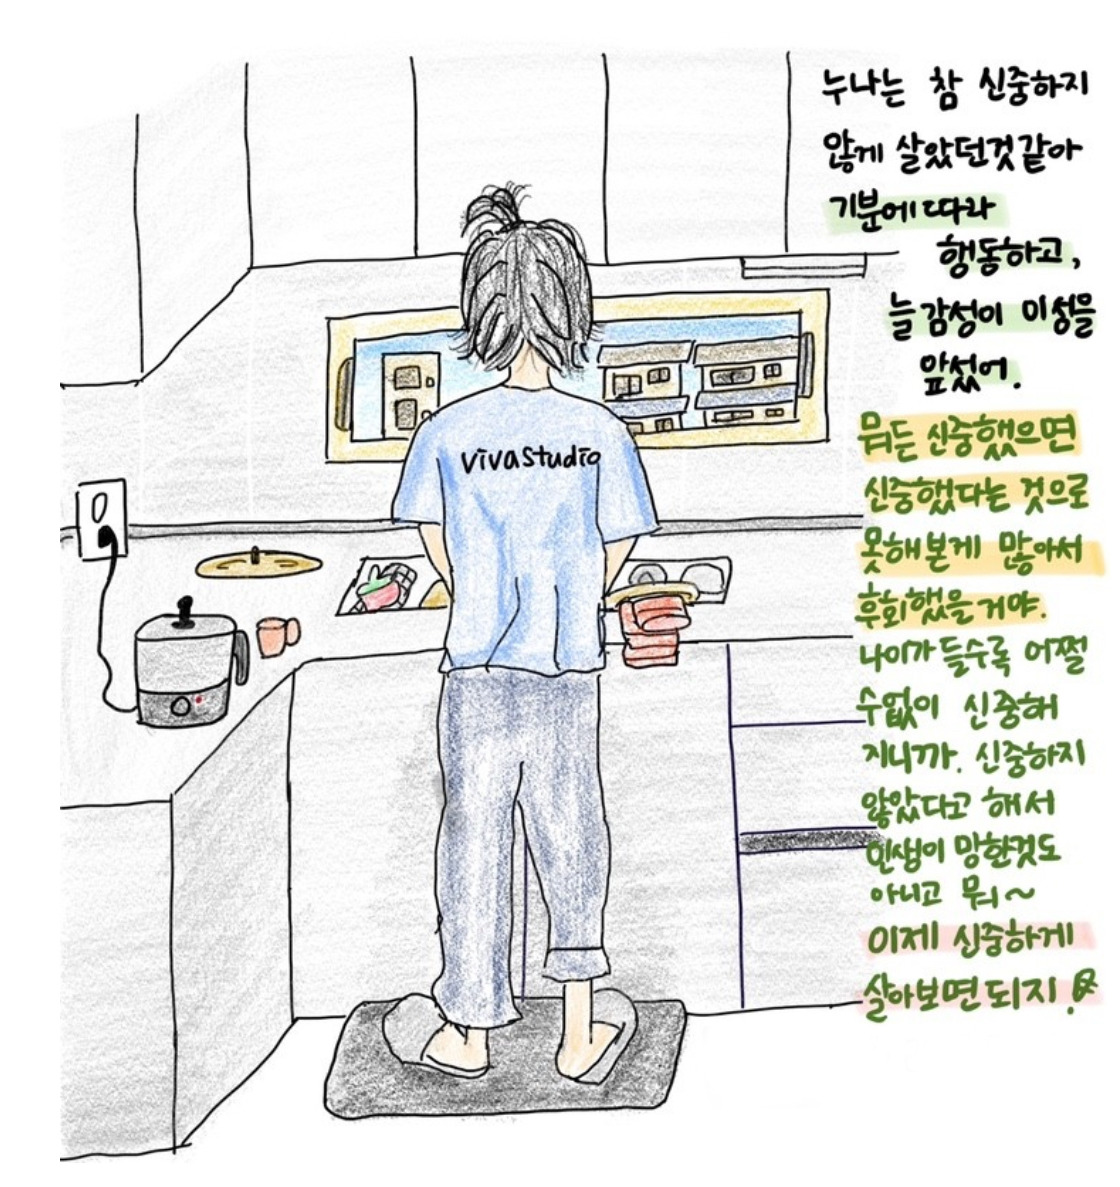 누나는 참 신중하지
않게 살았던것같아
기분에따라
행동하고,
늘 감성이 이성을
앞섰어.
뭐든 신중했으면
신중했다는 것으로
못해본게 많아서
후회했을거야.
나이가 들수록 어쩔
수없이 신중해
지니까. 신중하지
않았다고 해서
인생이 망한것도
아니고 뭐~
이제 신중하게
살아보면되지!
vivastudio